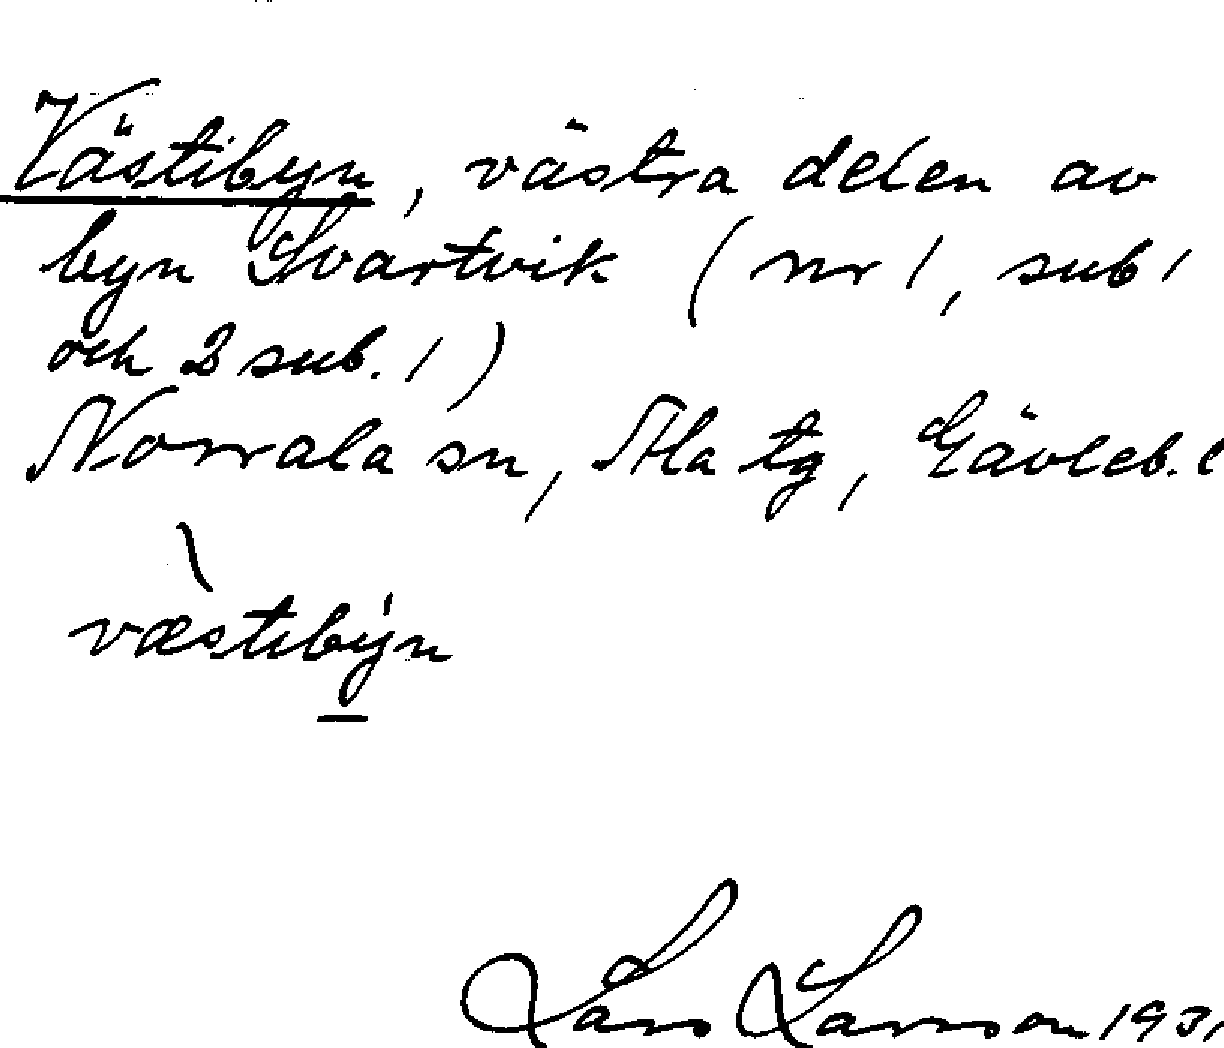 Västibyn, västra delen av
byn Svartvik (nr 1, sub 1
och 2 sub. 1)
Norrala sn, Ala tg, Gävleb. l
væstibýn
Lars Larsson 1931